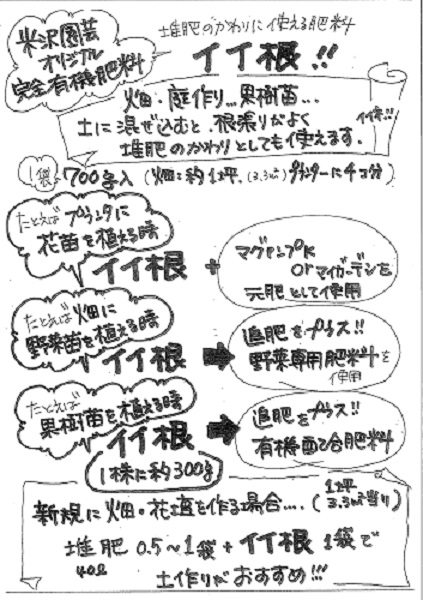 米沢園芸
オリジナル
完全有機肥料
堆肥のかわりに使える肥料
イイ根!!
畑・庭作り…果樹苗…
土に混ぜ込むと、根張りがよく イイネ!!
堆肥のかわりとしても使えます。
1袋 700g入 (畑:約1坪(3.3㎡)プランターに4コ分)
たとえば プランタに
花苗を植える時
イイ根 +
マグァンプK
orマイガーデンを
元肥として使用
たとえば 畑に
野菜苗を植える時
イイ根 ➡
追肥をプラス!!
野菜専用肥料を
使用
たとえば
果樹苗を植える時
イイ根 ➡
1株に約300g
追肥をプラス!!
有機配合肥料
新規に畑・花壇を作る場合…. (1坪 3.3㎡当り)
堆肥 0.5~1袋 + イイ根 1袋で
40ℓ
土作りがおすすめ!!!